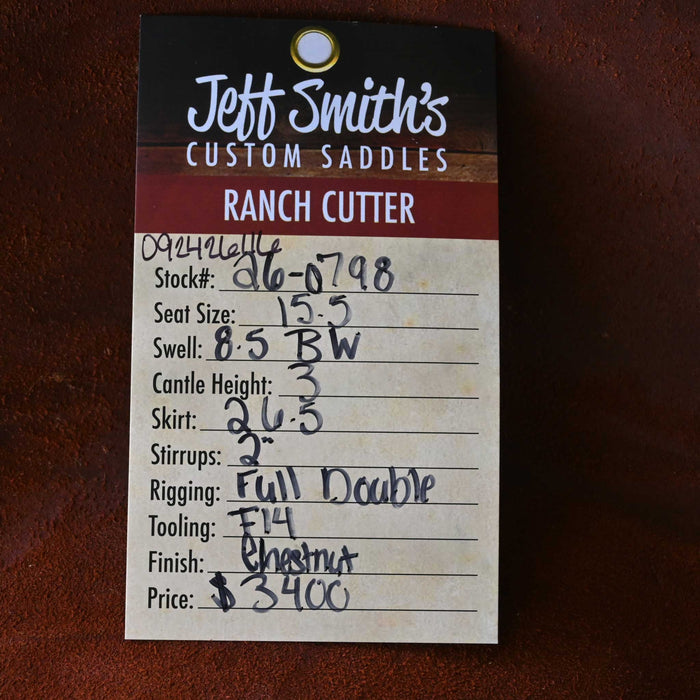 Jeff Smith's
CUSTOM SADDLES
RANCH CUTTER
Stock#: 26-0798
Seat Size: 15.5
Swell: 8.5 BW
Cantle Height: 3
Skirt: 26.5
Stirrups: 2"
Rigging: Full Double
Tooling: F14
Finish: Chestnut
Price: $3400